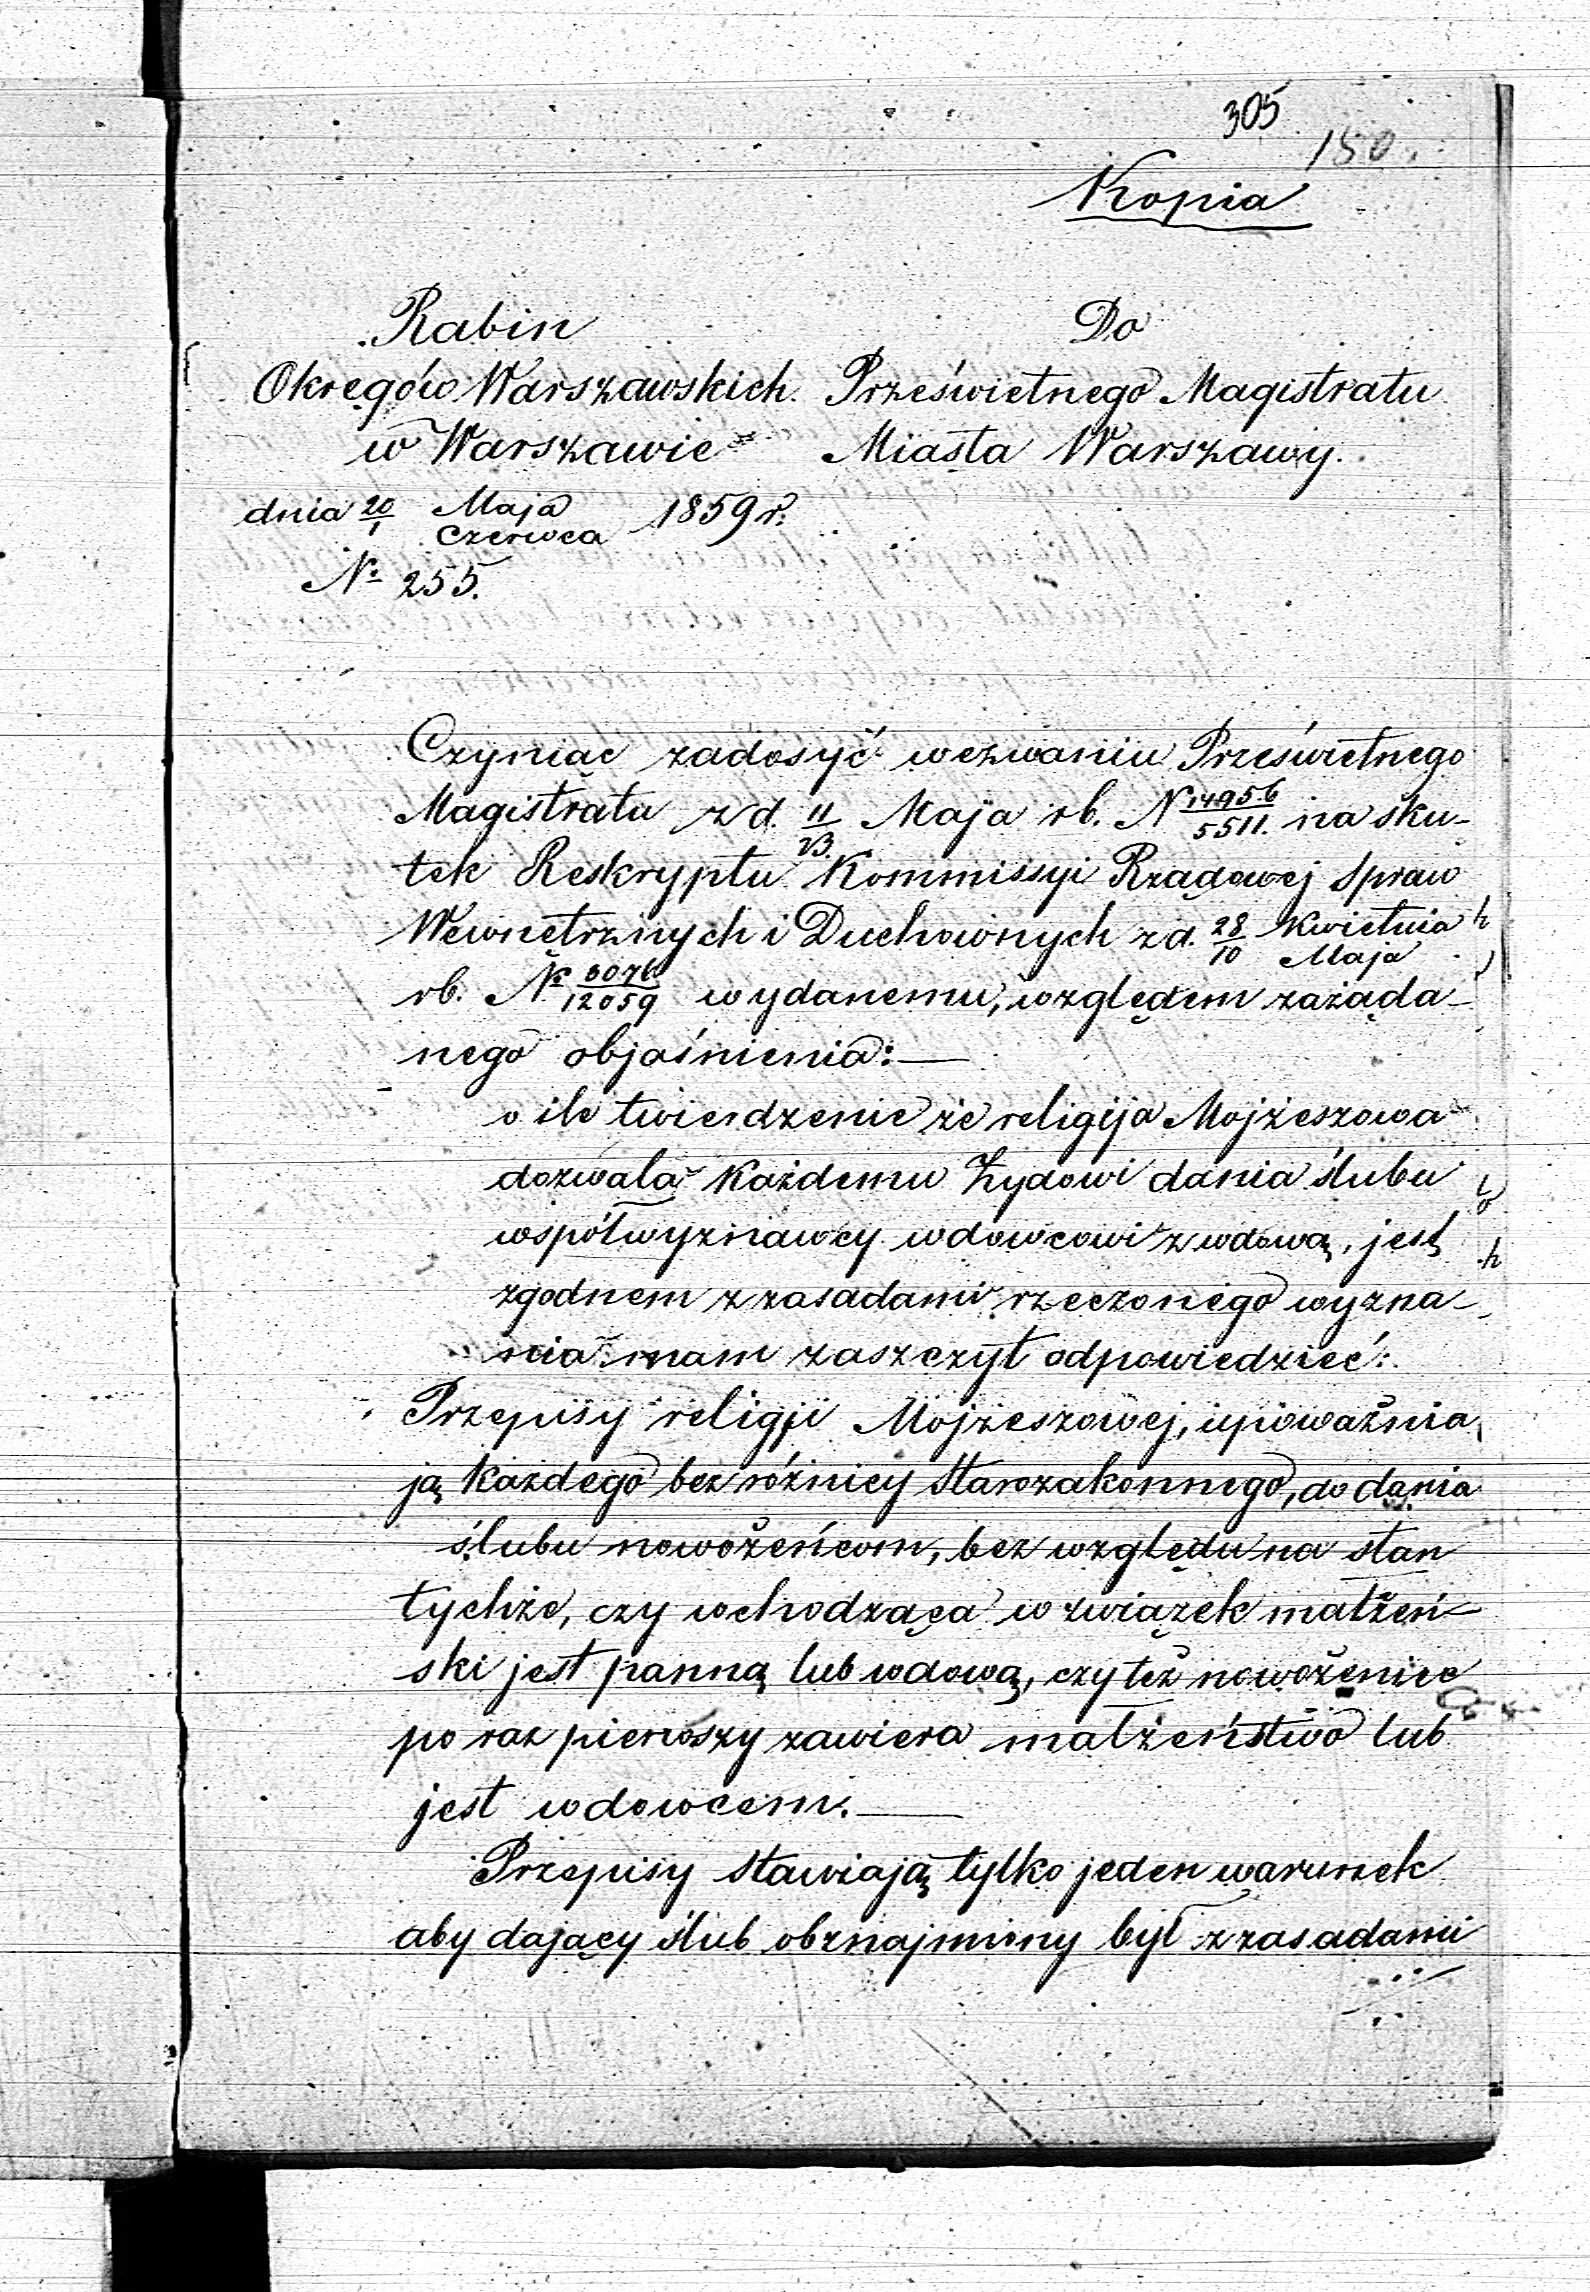 305
150.
Kopia
Rabin
Okręgów Warszawskich
w Warszawie
dnia 20/1 Maja/Czerwca 1859 r.
No 255.
Do
Prześwietnego Magistratu
Miasta Warszawy.
Czyniąc zadosyć wezwaniu Prześwietnego
Magistratu z d. 11/23 Maja rb. N 14956/5511. na sku-
tek Reskryptu Kommissyi Rządowej Spraw
Wewnętrznych i Duchownych z d. 28/10 Kwietnia/Maja
rb. No 6076/12059 wydanemu, względem zażąda-
nego objaśnienia:—
o ile twierdzenie że religija Mojżeszowa
dozwala każdemu Żydowi dania ślubu
współwyznawcy wdowcowi z wdową, jest
zgodnem z zasadami rzeczonego wyzna-
nia mam zaszczyt odpowiedzieć:
Przepisy religji Mojżeszowej, upoważnia
ją każdego bez różnicy Starozakonnego, do dania
ślubu nowożeńcom, bez względu na stan
tychże, czy wchodząca w związek małżeń-
ski jest panną lub wdową, czy też nowożeniec
po raz pierwszy zawiera małżeństwo lub
jest wdowcem.—
Przepisy stawiają tylko jeden warunek
aby dający ślub obznajmiony był z zasadami